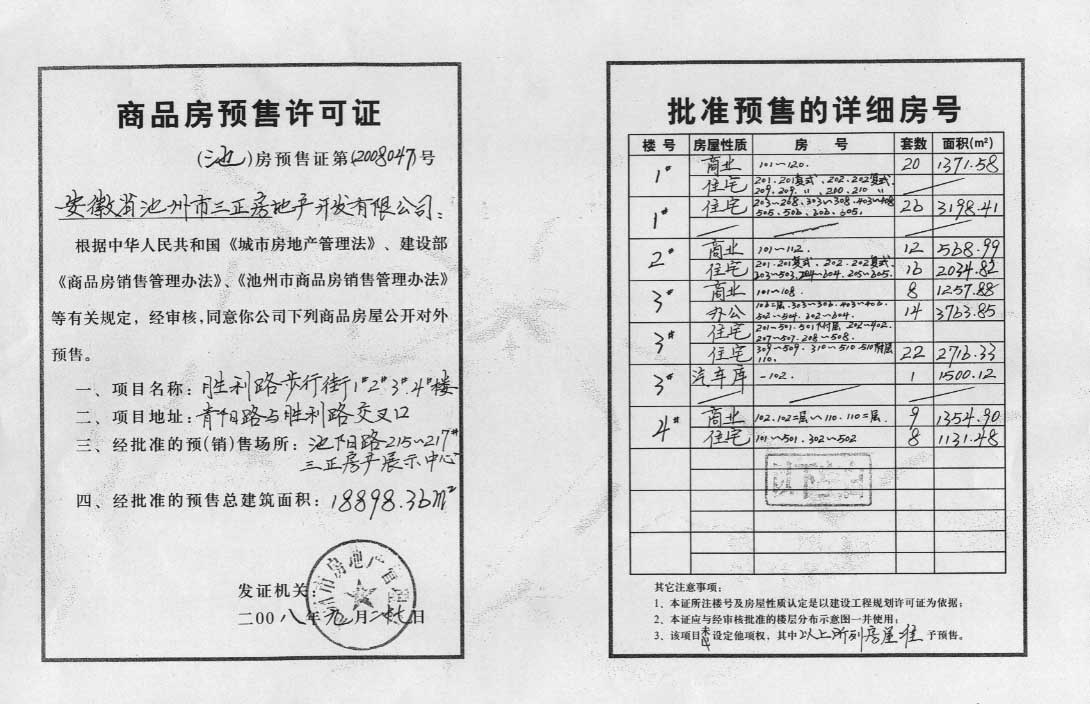 商品房预售许可证
(池)房预售证第(2008047)号
安徽省池州市三正房地产开发有限公司:
根据中华人民共和国《城市房地产管理法》、建设部
《商品房销售管理办法》、《池州市商品房销售管理办法》
等有关规定，经审核,同意你公司下列商品房屋公开对外
预售。
一、项目名称:胜利路步行街1#2#3#4#楼
二、项目地址:青阳路与胜利路交叉口
三、经批准的预(销)售场所:池阳路215~217#
三正房产展示中心
四、经批准的预售总建筑面积:18898.36m²
发证机关:
市房地产管理
二00八年元月二十七日
批准预售的详细房号
楼号 房屋性质 房号 套数 面积(m²)
1# 商业 101~120. 20 1371.58
住宅 201.201复式、202.202复式.
209.209.〃、210.210〃
1# 住宅 203~208.303~308.403~408 26 3198.41
505.506.606.605.
2# 商业 101~112. 12 568.99
住宅 201.201复式、202.202复式. 16 2034.82
303~503.204~604.205~605.
3# 商业 101~108. 8 1257.88
办公 106二层.303~306.403~406. 14 3763.85
502~504.602~604.
3# 住宅 201~501.501附层.202~402.
207~507.208~508.
住宅 309~509.310~510.510附层 22 2716.33
110.
3# 汽车库 -102. 1 1500.12
4# 商业 102.102二层~110.110二层. 9 1354.90
住宅 101~501.302~502 8 1131.48
以下空白
其它注意事项:
1、本证所注楼号及房屋性质认定是以建设工程规划许可证为依据;
2、本证应与经审核批准的楼层分布示意图一并使用;
3、该项目未设定他项权，其中以上所列房屋准予预售。